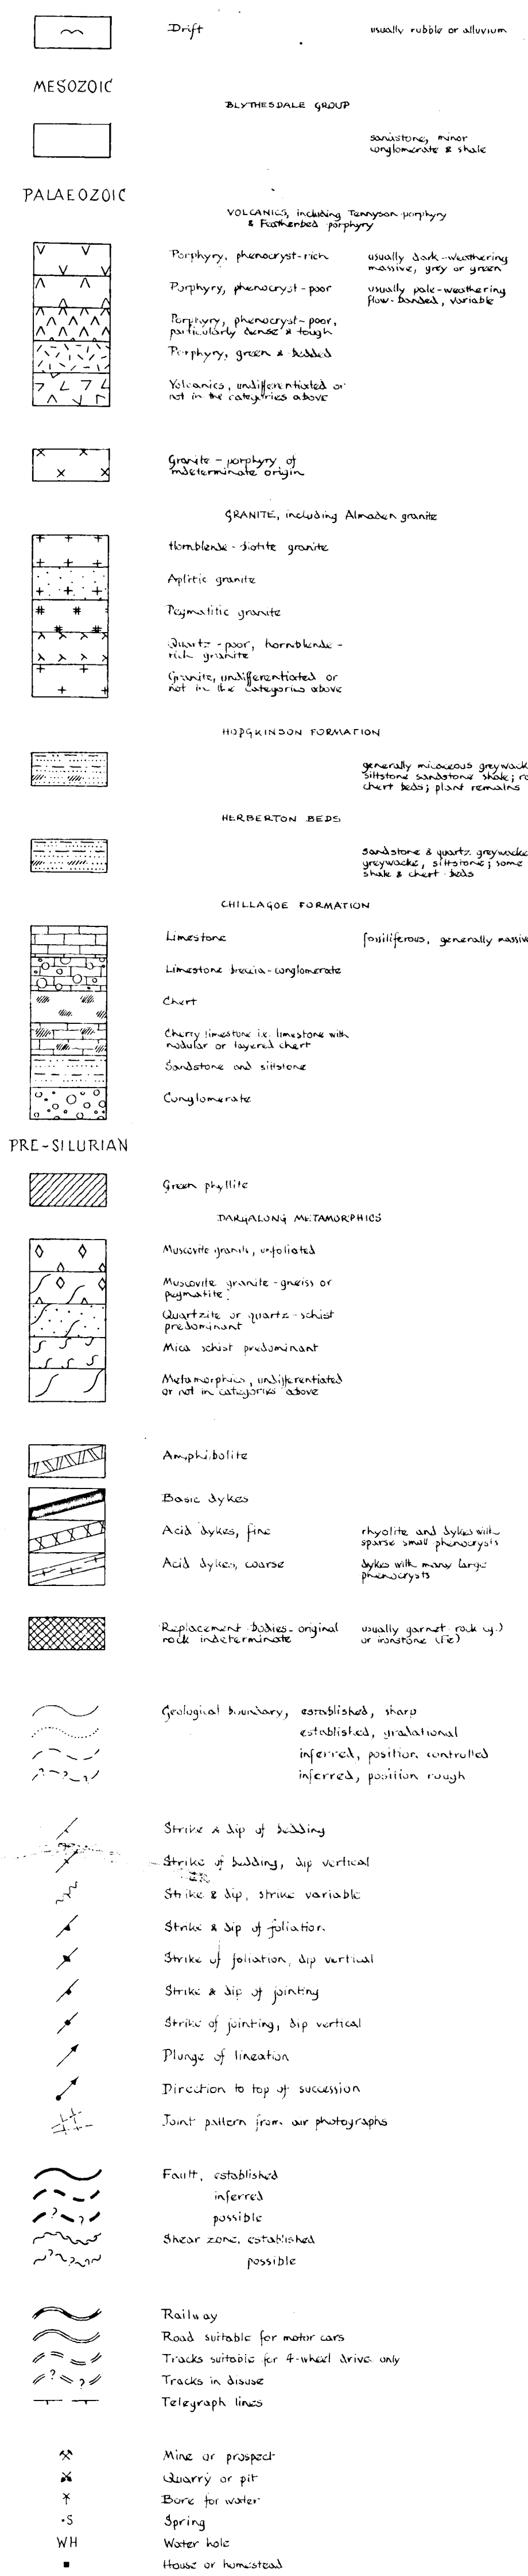 Drift usually rubble or alluvium
MESOZOIC
BLYTHESDALE GROUP
sandstone, minor
conglomerate & shale
PALAEOZOIC
VOLCANICS, including Tennyson porphyry
& Featherbed porphyry
Porphyry, phenocryst-rich usually dark-weathering
massive, grey or green
Porphyry, phenocryst-poor usually pale-weathering
flow-banded, variable
Porphyry, phenocryst-poor,
particularly dense & tough
Porphyry, green & bedded
Volcanics, undifferentiated or
not in the categories above
Granite-porphyry of
indeterminate origin
GRANITE, including Almaden granite
Hornblende-biotite granite
Aplitic granite
Pegmatitic granite
Quartz-poor, hornblende-
rich granite
Granite, undifferentiated or
not in the categories above
HODGKINSON FORMATION
generally micaceous greywack
siltstone sandstone shale; ra
chert beds; plant remains
HERBERTON BEDS
sandstone & quartz greywacke
greywacke, siltstone; some
shale & chert beds
CHILLAGOE FORMATION
Limestone fossiliferous, generally massive
Limestone breccia-conglomerate
Chert
Cherty limestone i.e. limestone with
nodular or layered chert
Sandstone and siltstone
Conglomerate
PRE-SILURIAN
Green phyllite
DARGALONG METAMORPHICS
Muscovite granite, unfoliated
Muscovite granite-gneiss or
pegmatite
Quartzite or quartz-schist
predominant
Mica schist predominant
Metamorphics, undifferentiated
or not in categories above
Amphibolite
Basic dykes
Acid dykes, fine rhyolite and dykes with
sparse small phenocrysts
Acid dykes, coarse dykes with many large
phenocrysts
Replacement bodies-original usually garnet rock (g.)
rock indeterminate or ironstone (Fe)
Geological boundary, established, sharp
established, gradational
inferred, position controlled
inferred, position rough
Strike & dip of bedding
Strike of bedding, dip vertical
Strike & dip, strike variable
Strike & dip of foliation
Strike of foliation, dip vertical
Strike & dip of jointing
Strike of jointing, dip vertical
Plunge of lineation
Direction to top of succession
Joint pattern from air photographs
Fault, established
inferred
possible
Shear zone, established
possible
Railway
Road suitable for motor cars
Tracks suitable for 4-wheel drive only
Tracks in disuse
Telegraph lines
Mine or prospect
Quarry or pit
Bore for water
S Spring
WH Water hole
House or homestead